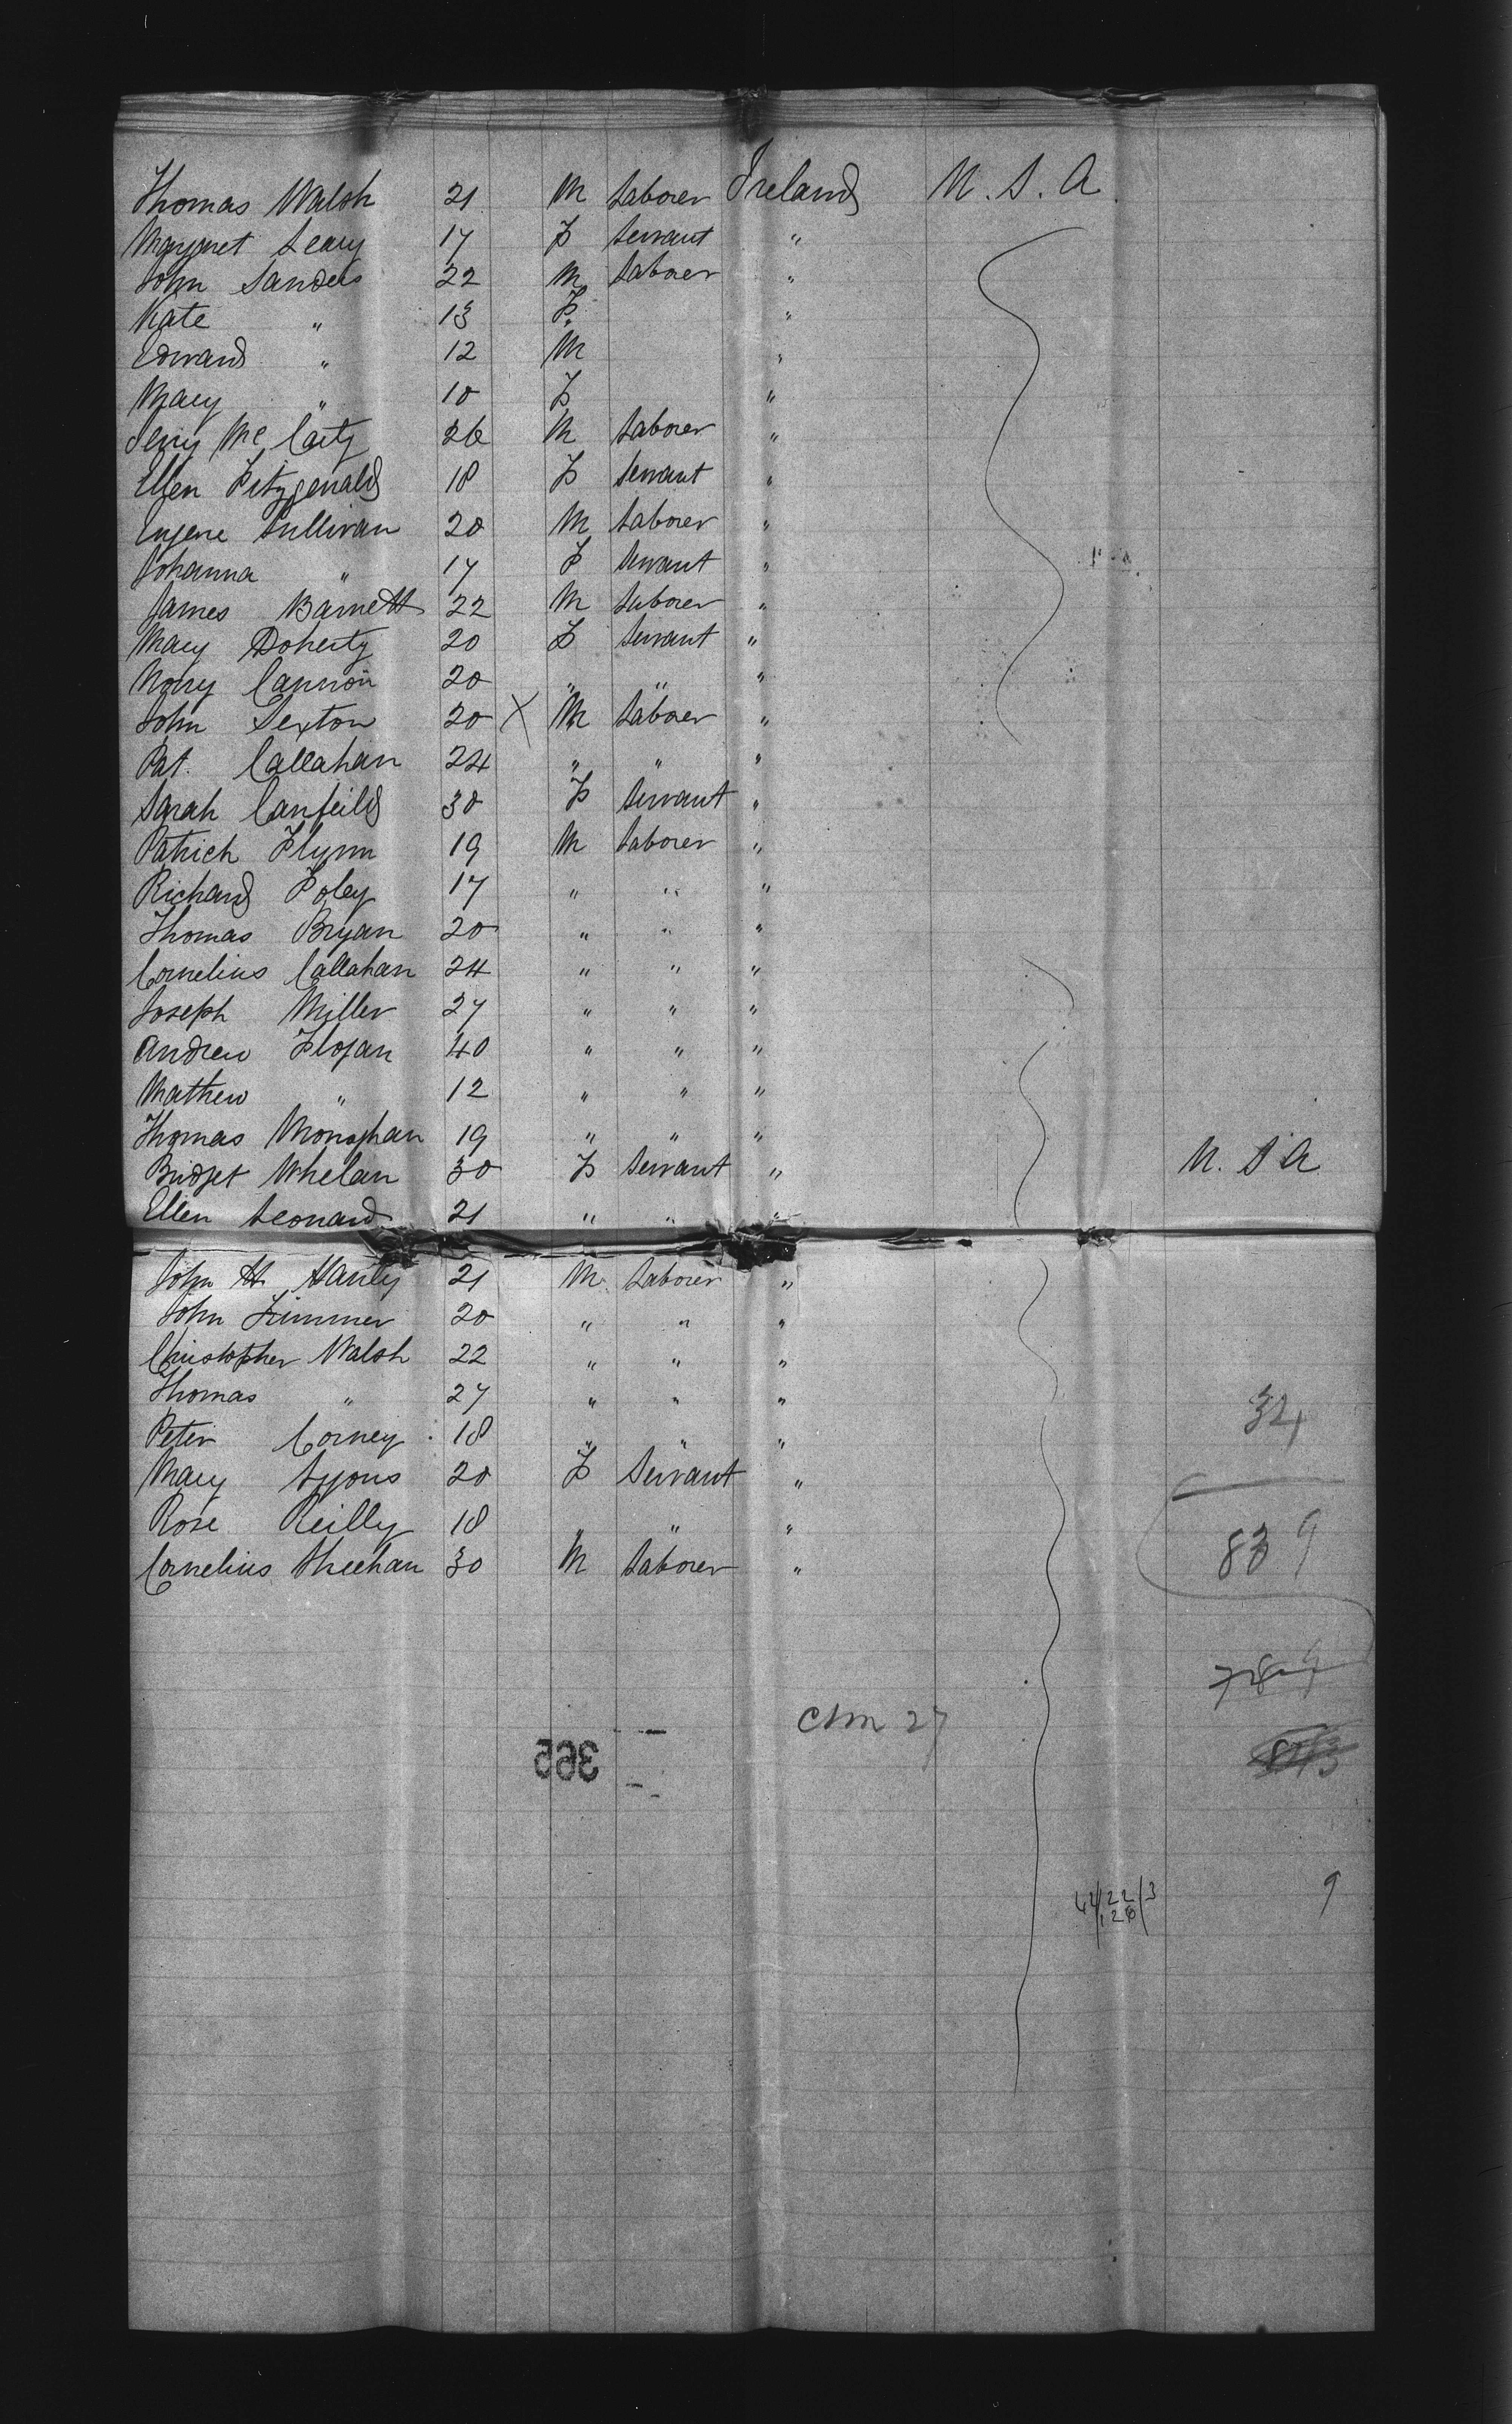 Thomas Walsh 21 M Laborer Ireland U. S. A
Margaret Leary 17 F Servant "
John Sanders 22 M Laborer "
Kate " 13 F "
Edward " 12 M "
Mary " 10 F "
Jerry Mc Carty 26 M Laborer "
Ellen Fitzgerald 18 F Servant "
Eugene Sullivan 20 M Laborer "
Johanna " 17 F Servant "
James Barnett 22 M Laborer "
Mary Doherty 20 F Servant "
Nory Cannon 20 " " "
John Sexton 20 X M Laborer "
Pat. Callahan 24 " " "
Sarah Canfeild 30 F Servant "
Patrick Flynn 19 M Laborer "
Richard Foley 17 " " "
Thomas Bryan 20 " " "
Cornelius Callahan 24 " " "
Joseph Miller 27 " " "
Andrew Flogan 40 " " "
Mathew " 12 " " "
Thomas Monaghan 19 " " "
Bridget Whelan 30 F Servant " U. S A
Ellen Leonard 21 " " "
John H Hanly 21 M Laborer "
John Zimmer 20 " " "
Christopher Walsh 22 " " "
Thomas " 27 " " "
Peter Corney 18 " " "
Mary Lyons 20 F Servant "
Rose Reilly 18 " " "
Cornelius Sheehan 30 M Laborer "
34
839
789
27
362
9